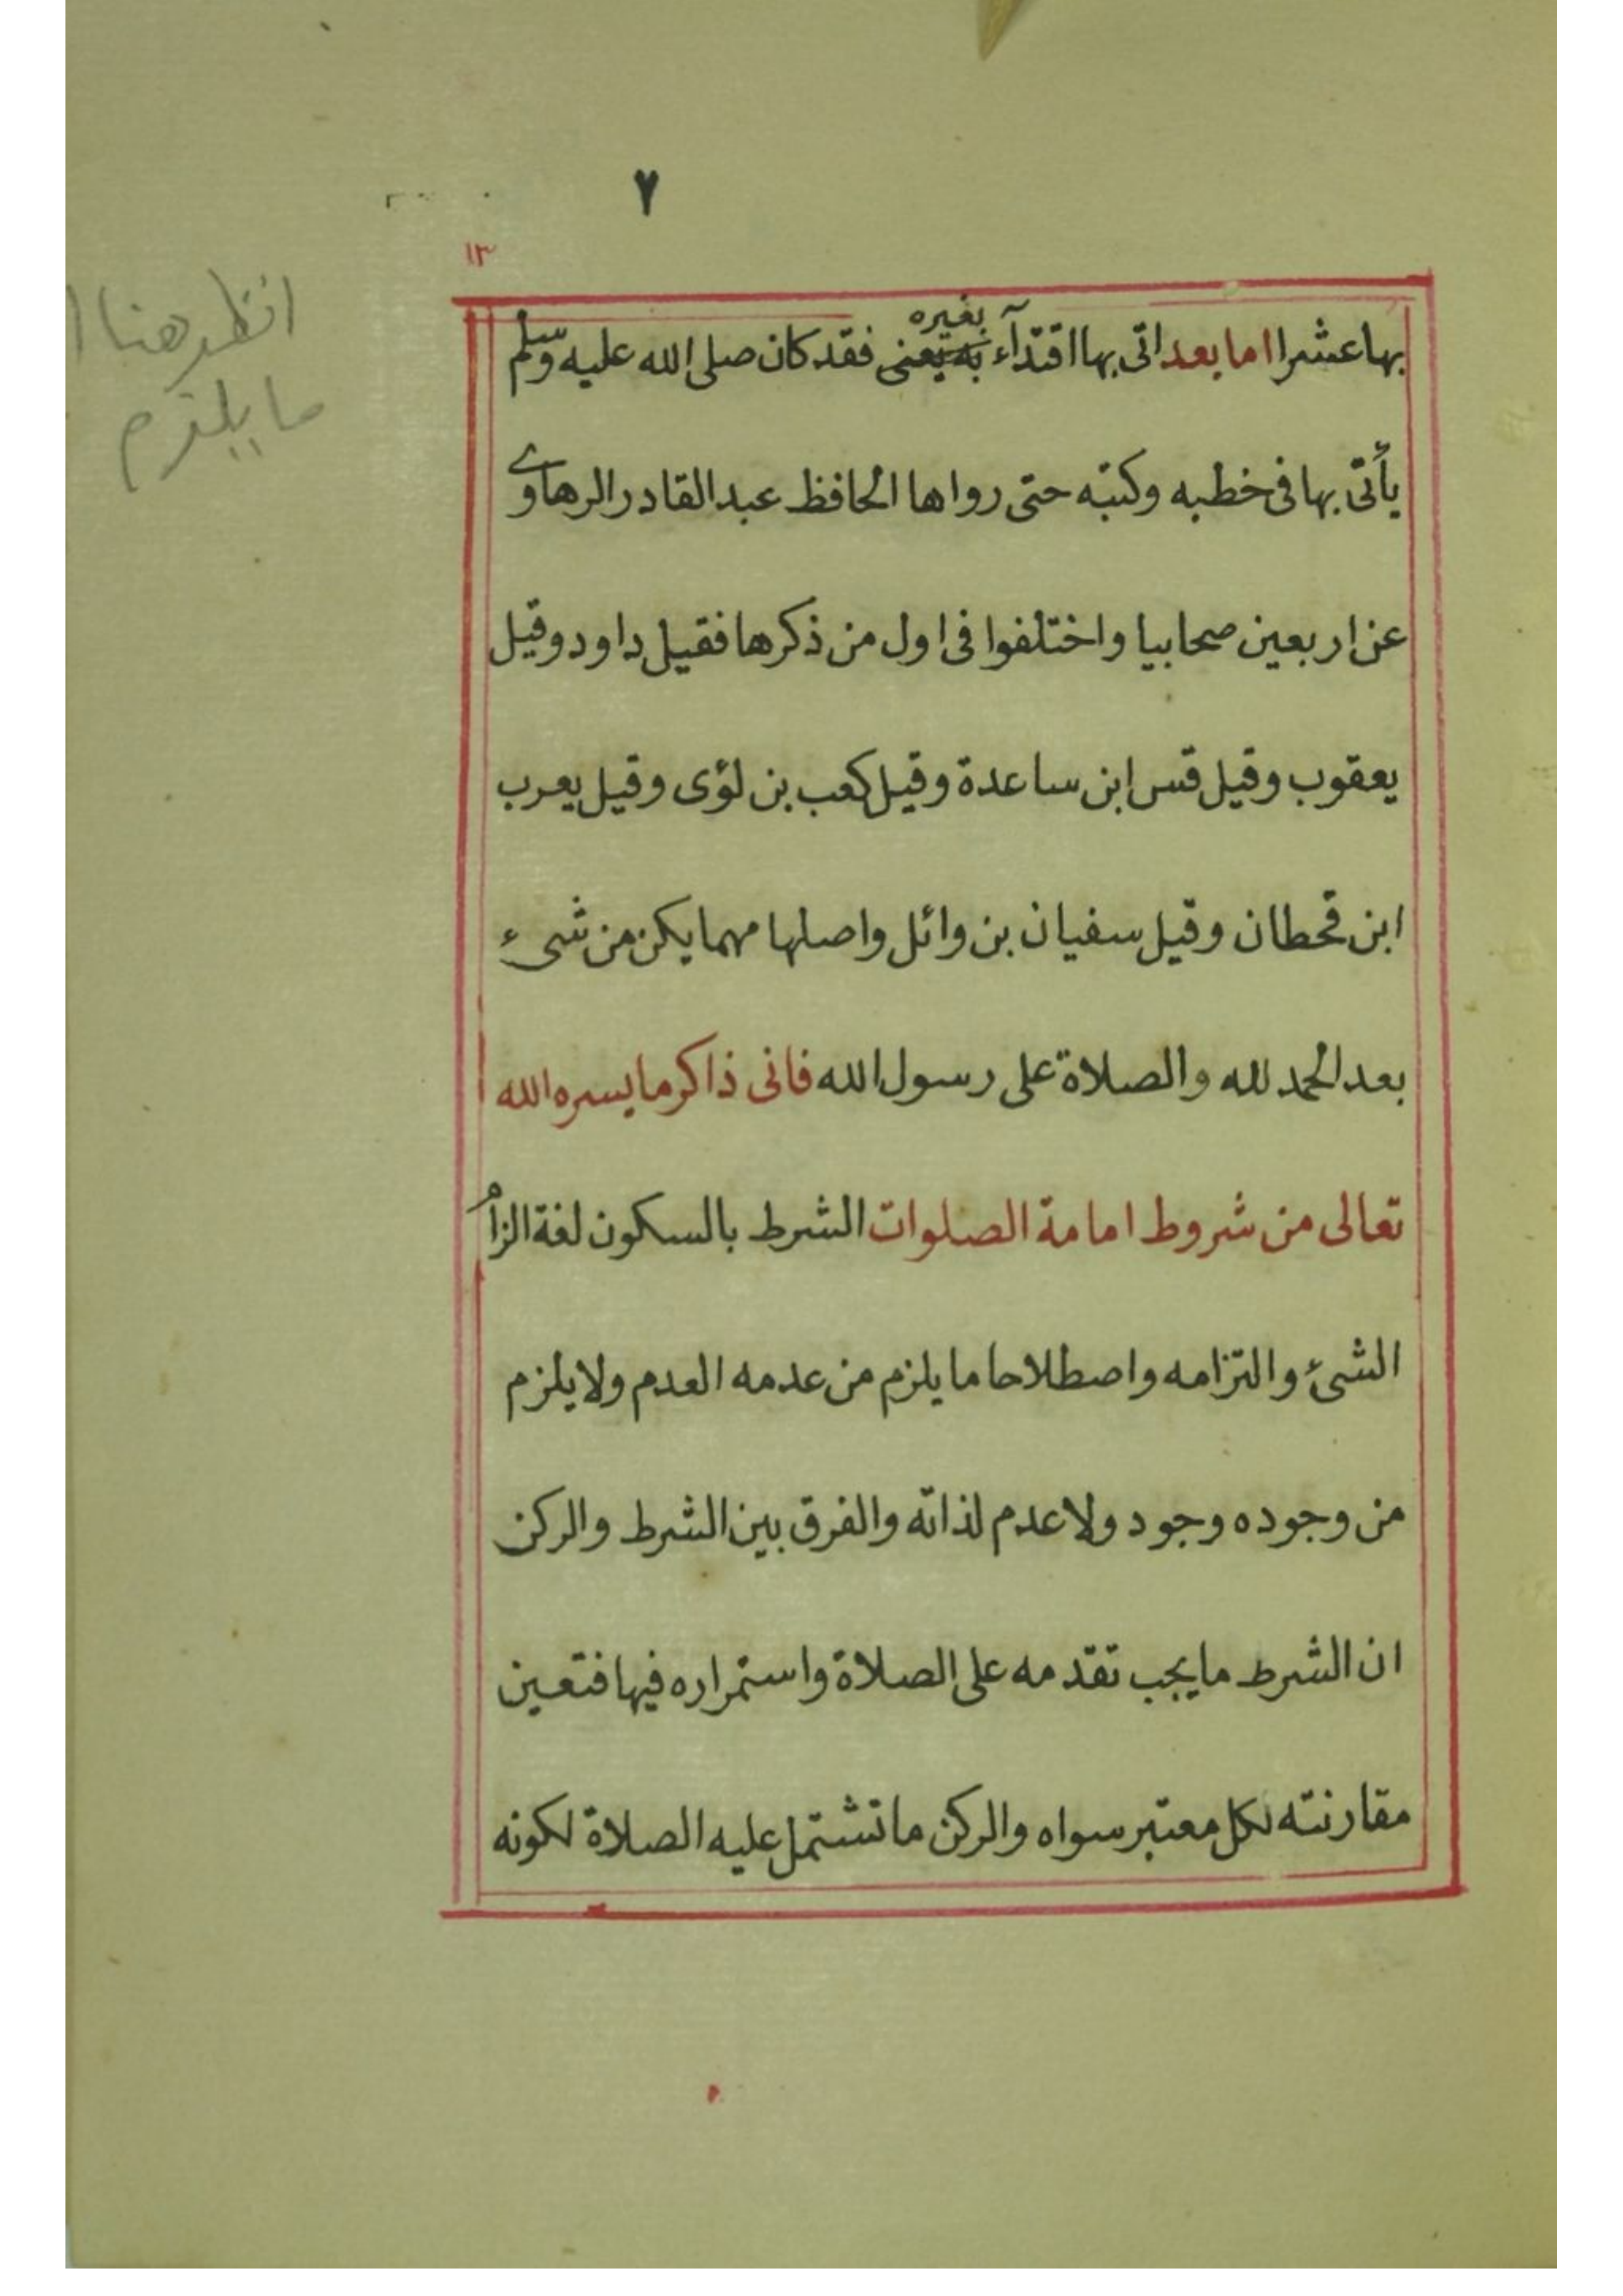 ٧
١٣
انظر هنا
ما يلزم
بغيره
بها عشرا اما بعد اتى بها اقتدآء به يعنى فقد كان صلى الله عليه وسلم
يأتى بها فى خطبه وكتبه حتى رواها الحافظ عبد القادر الرهاوى
عن اربعين صحابيا واختلفوا فى اول من ذكرها فقيل داود وقيل
يعقوب وقيل قس ابن ساعدة وقيل كعب بن لؤى وقيل يعرب
ابن قحطان وقيل سفيان بن وائل واصلها مهما يكن من شىء
بعد الحمد لله والصلاة على رسول الله فانى ذاكر ما يسره الله
تعالى من شروط امامة الصلوات الشرط بالسكون لغة الزام
الشئ والتزامه واصطلاحا ما يلزم من عدمه العدم ولا يلزم
من وجوده وجود ولا عدم لذاته والفرق بين الشرط والركن
ان الشرط ما يجب تقدمه على الصلاة واستمراره فيها فتعين
مقارنته لكل معتبر سواه والركن ما تشتمل عليه الصلاة لكونه